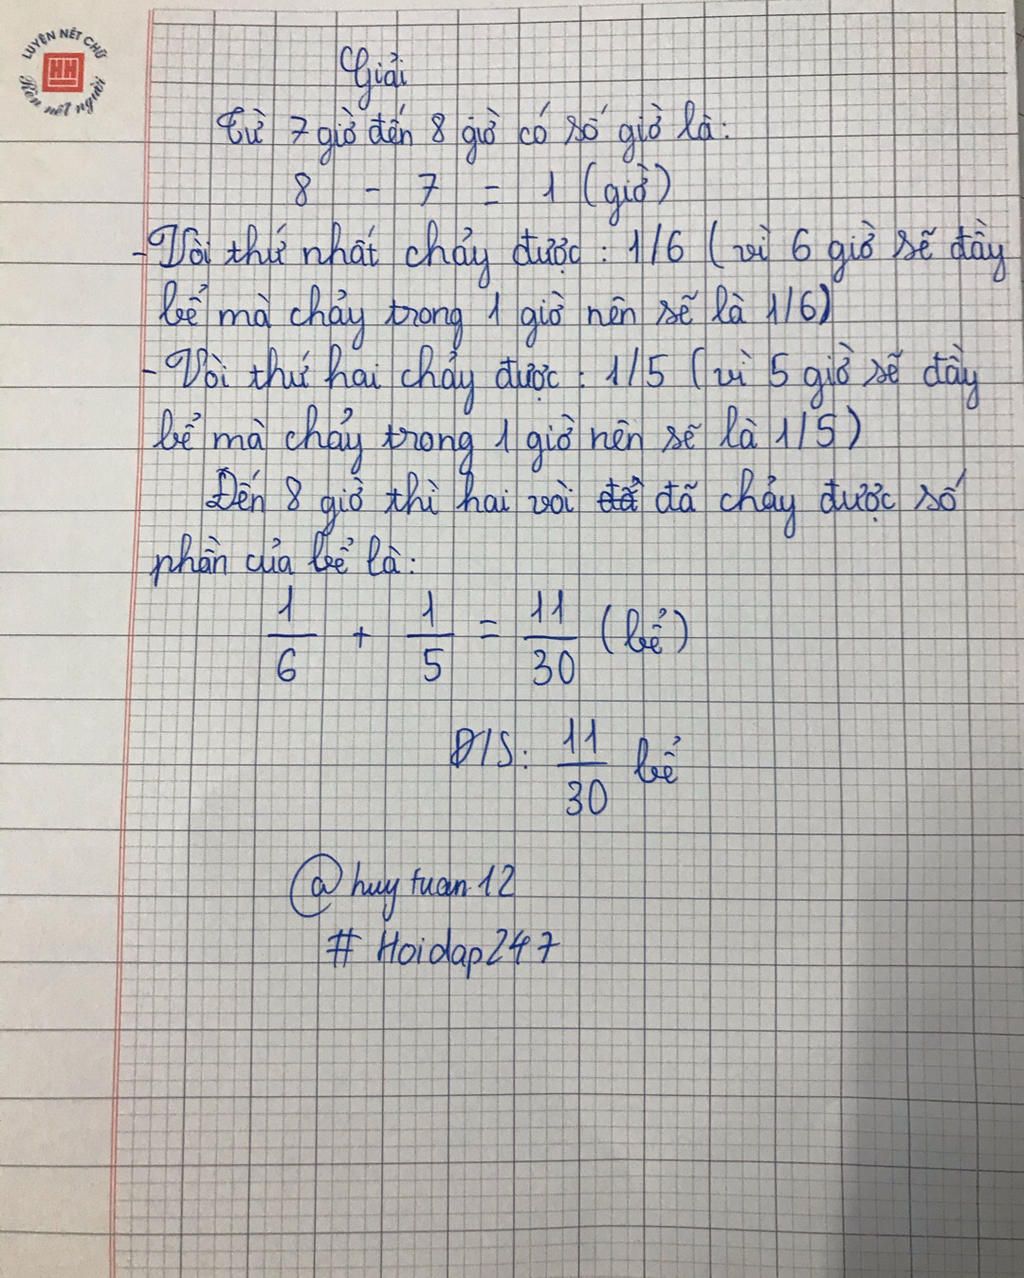 LUYỆN NÉT CHỮ
HH
Rèn nết người
Giải
Từ 7 giờ đến 8 giờ có số giờ là:
8 - 7 = 1 (giờ)
- Vòi thứ nhất chảy được: 1/6 (vì 6 giờ sẽ đầy
bể mà chảy trong 1 giờ nên sẽ là 1/6)
- Vòi thứ hai chảy được: 1/5 (vì 5 giờ sẽ đầy
bể mà chảy trong 1 giờ nên sẽ là 1/5)
Đến 8 giờ thì hai vòi đã chảy được số
phần của bể là:
1/6 + 1/5 = 11/30 (bể)
Đ/S: 11/30 bể
@huytuan12
# Hoidap247